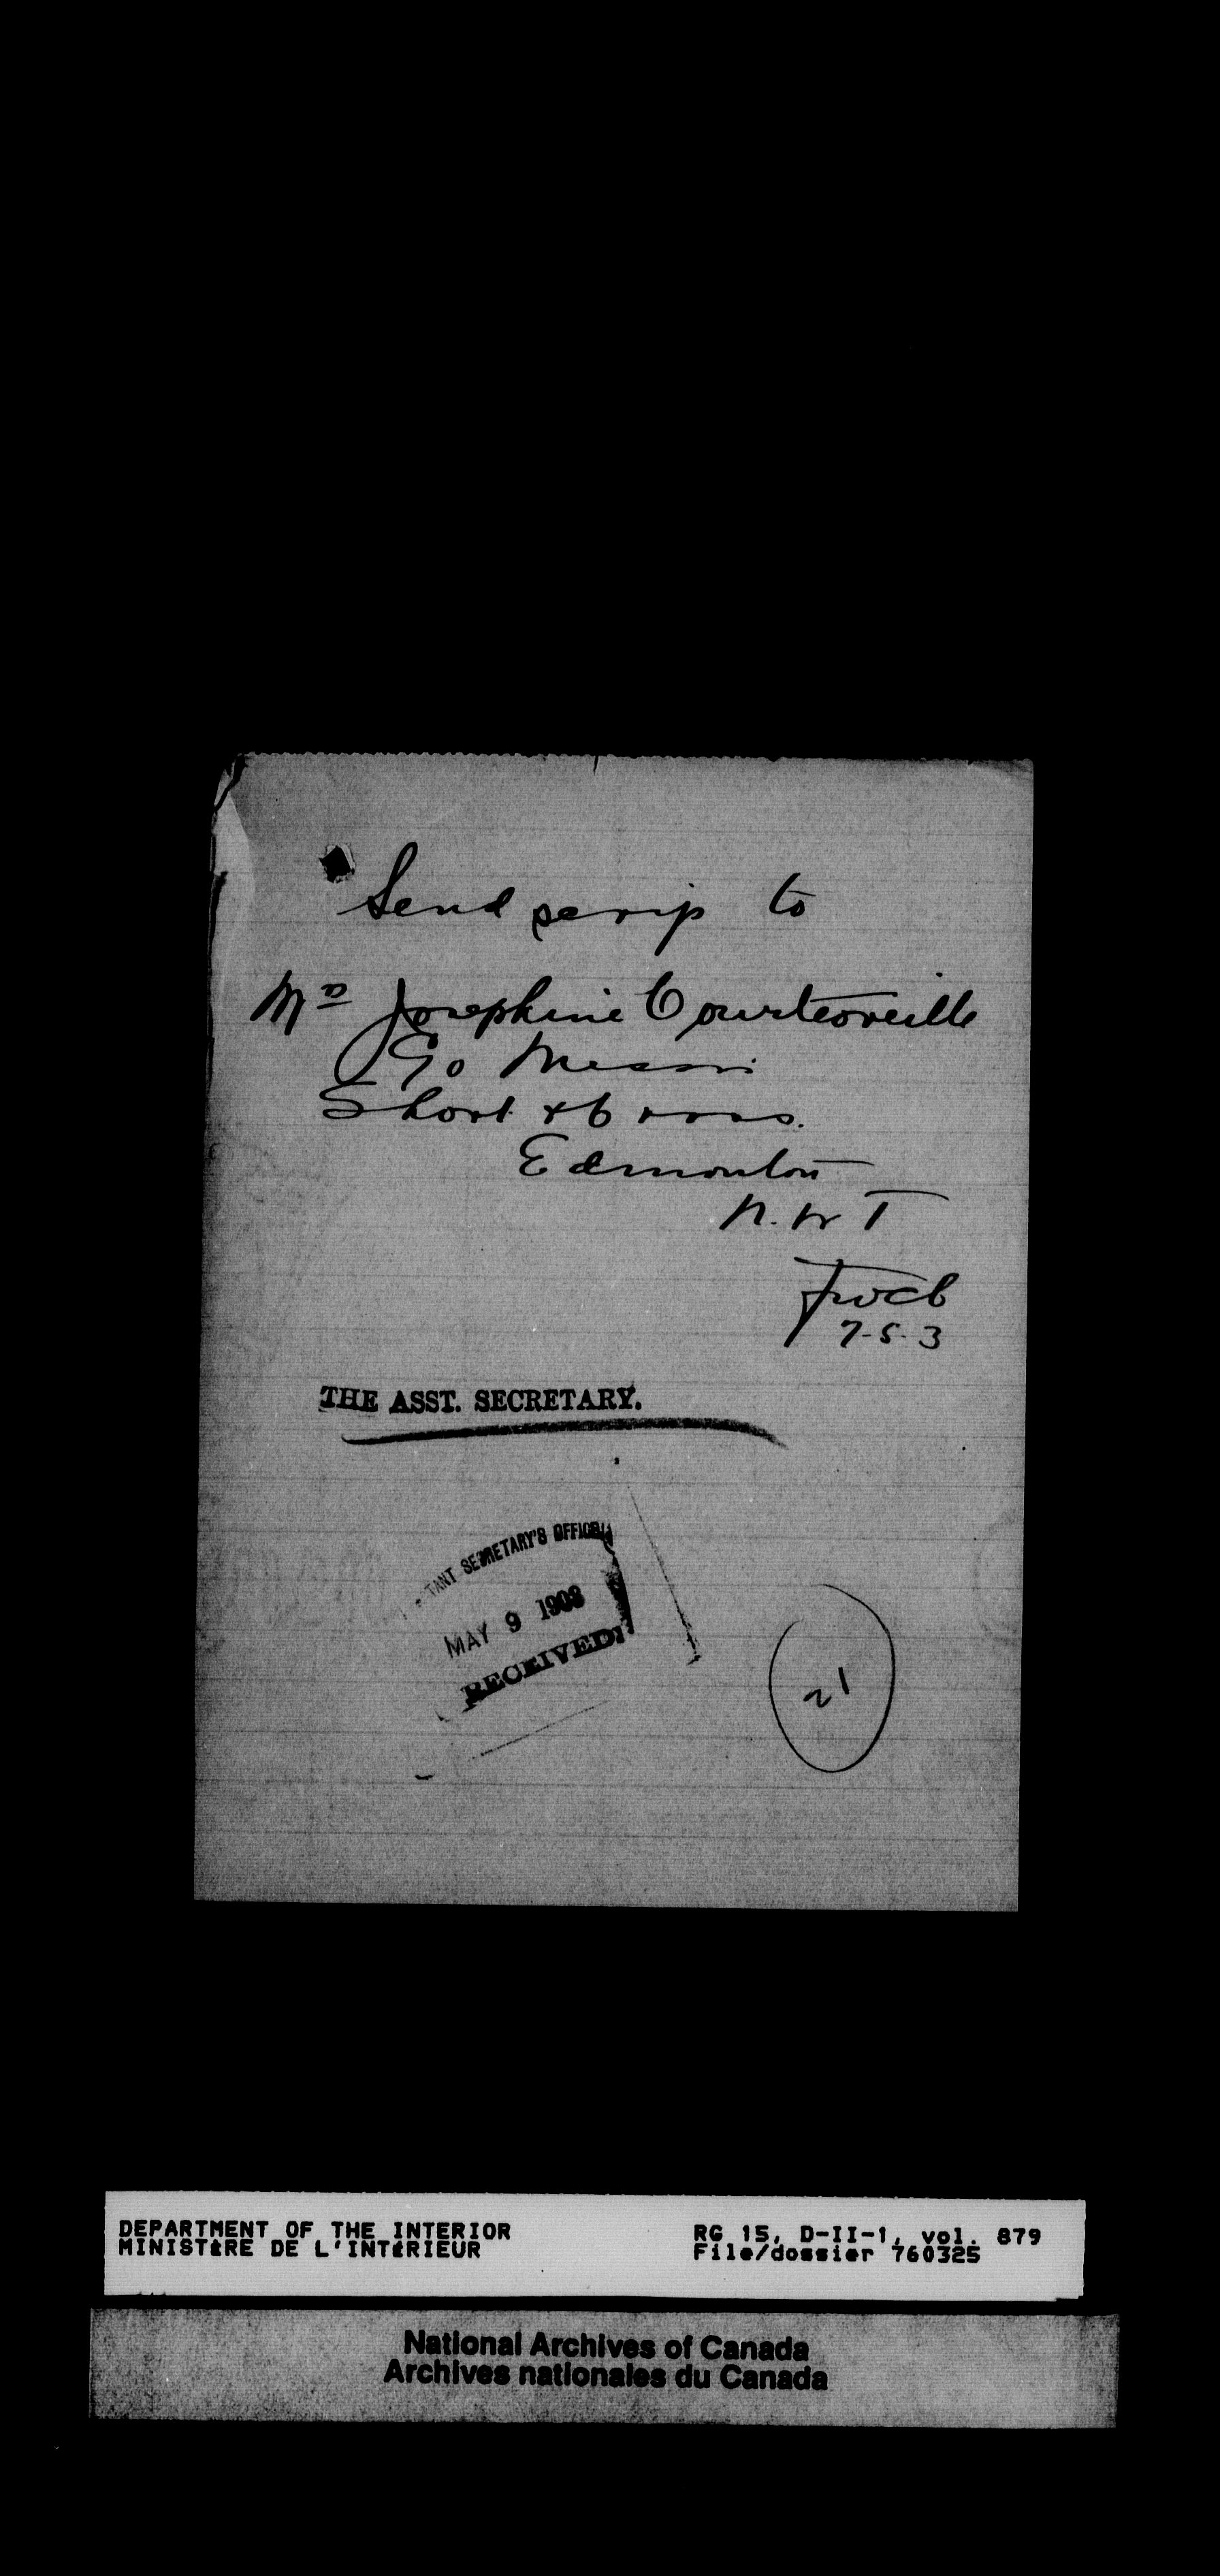 Send scrip to
Mrs Josephine Courtoreille
C/o Messrs
Short & Cross.
Edmonton
N.W T
7-5-3
THE ASST. SECRETARY.
TANT SECRETARY'S OFFICE
MAY 9 1903
RECEIVED
21
DEPARTMENT OF THE INTERIOR RG 15, D-II-1, vol. 879
MINISTÈRE DE L'INTÉRIEUR File/dossier 760325
National Archives of Canada
Archives nationales du Canada